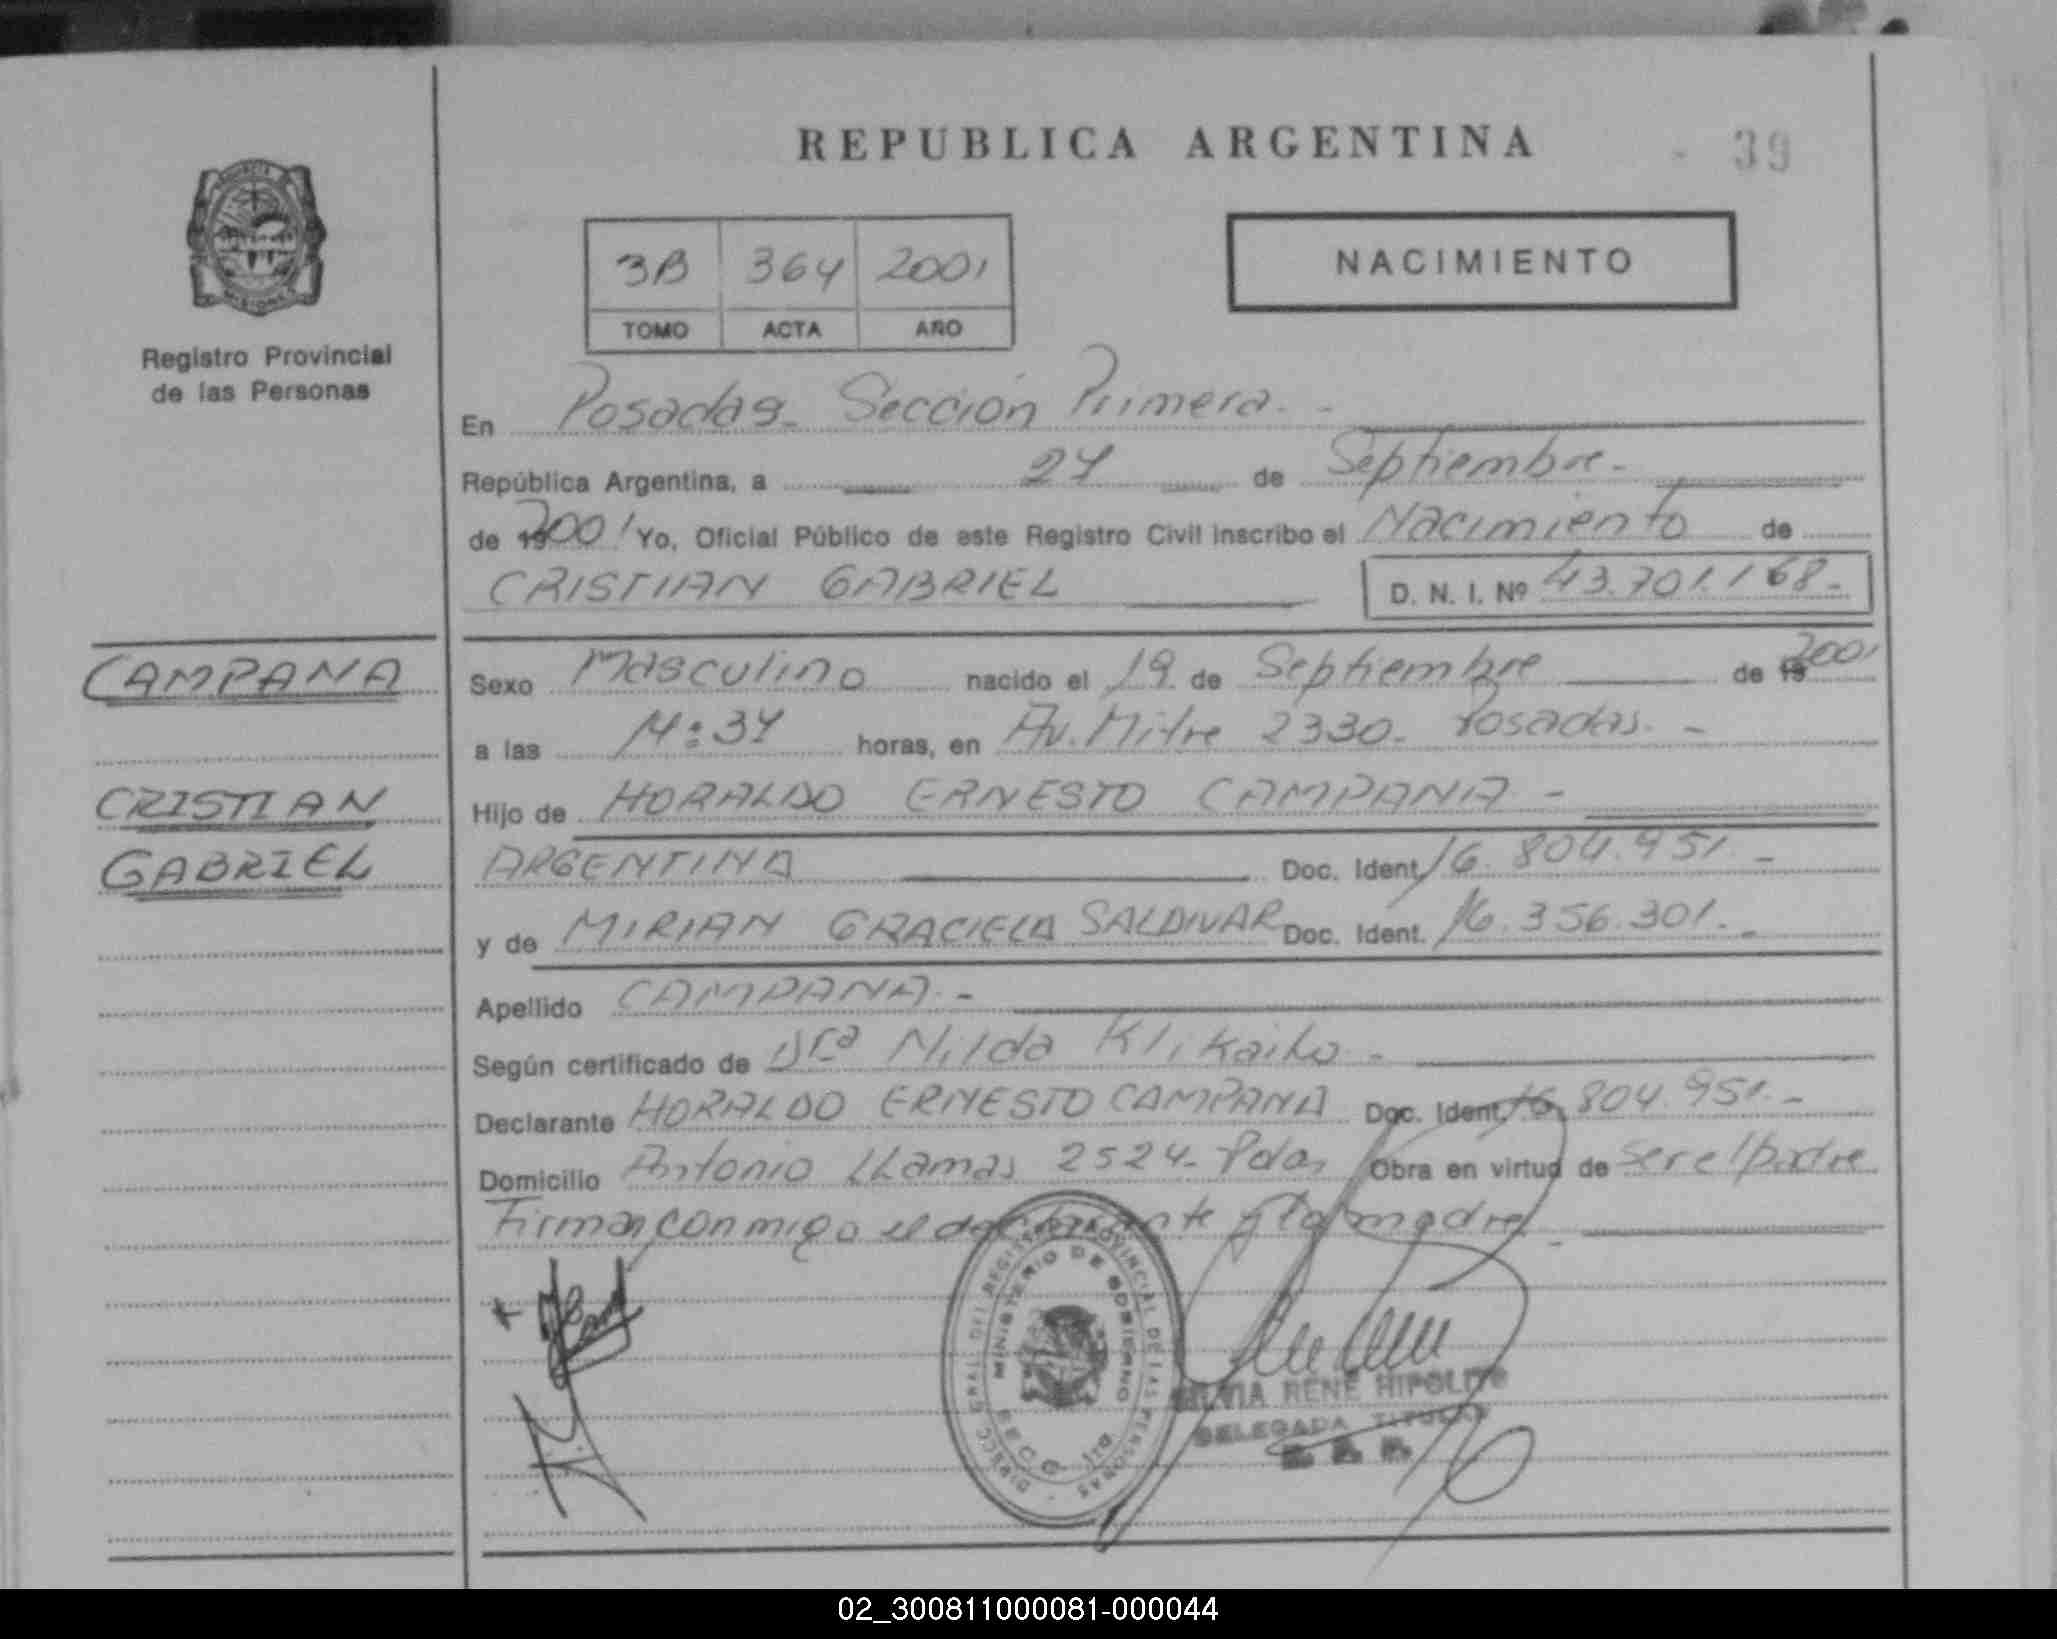 REPUBLICA ARGENTINA
- 39
Registro Provincial
de las Personas
3B 364 2001
TOMO ACTA AÑO
NACIMIENTO
En Posadas- Sección Primera.-
República Argentina, a 24 de Septiembre-
de 2001 Yo, Oficial Público de este Registro Civil inscribo el Nacimiento de
CRISTIAN GABRIEL D. N. I. Nº 43.701.168-
CAMPANA
CRISTIAN
GABRIEL
Sexo Masculino nacido el 19 de Septiembre de 2001
a las 14:34 horas, en Av. Mitre 2330- Posadas.-
Hijo de HORALDO ERNESTO CAMPANA-
ARGENTINA Doc. Ident. 16.804.951.-
y de MIRIAN GRACIELA SALDIVAR Doc. Ident. 16.356.301.-
Apellido CAMPANA.-
Según certificado de Dra Nilda
Declarante HORALDO ERNESTO CAMPANA Doc. Ident. 16.804.951.-
Domicilio Antonio LLamas 2524- Pdas Obra en virtud de ser el padre
Firman conmigo el declarante y la madre-
MINISTERIO DE GOBIERNO
SECC. 1ra
SILVIA RENE HIPOLITO
DELEGADA TITULAR
R. P. P.
02_300811000081-000044